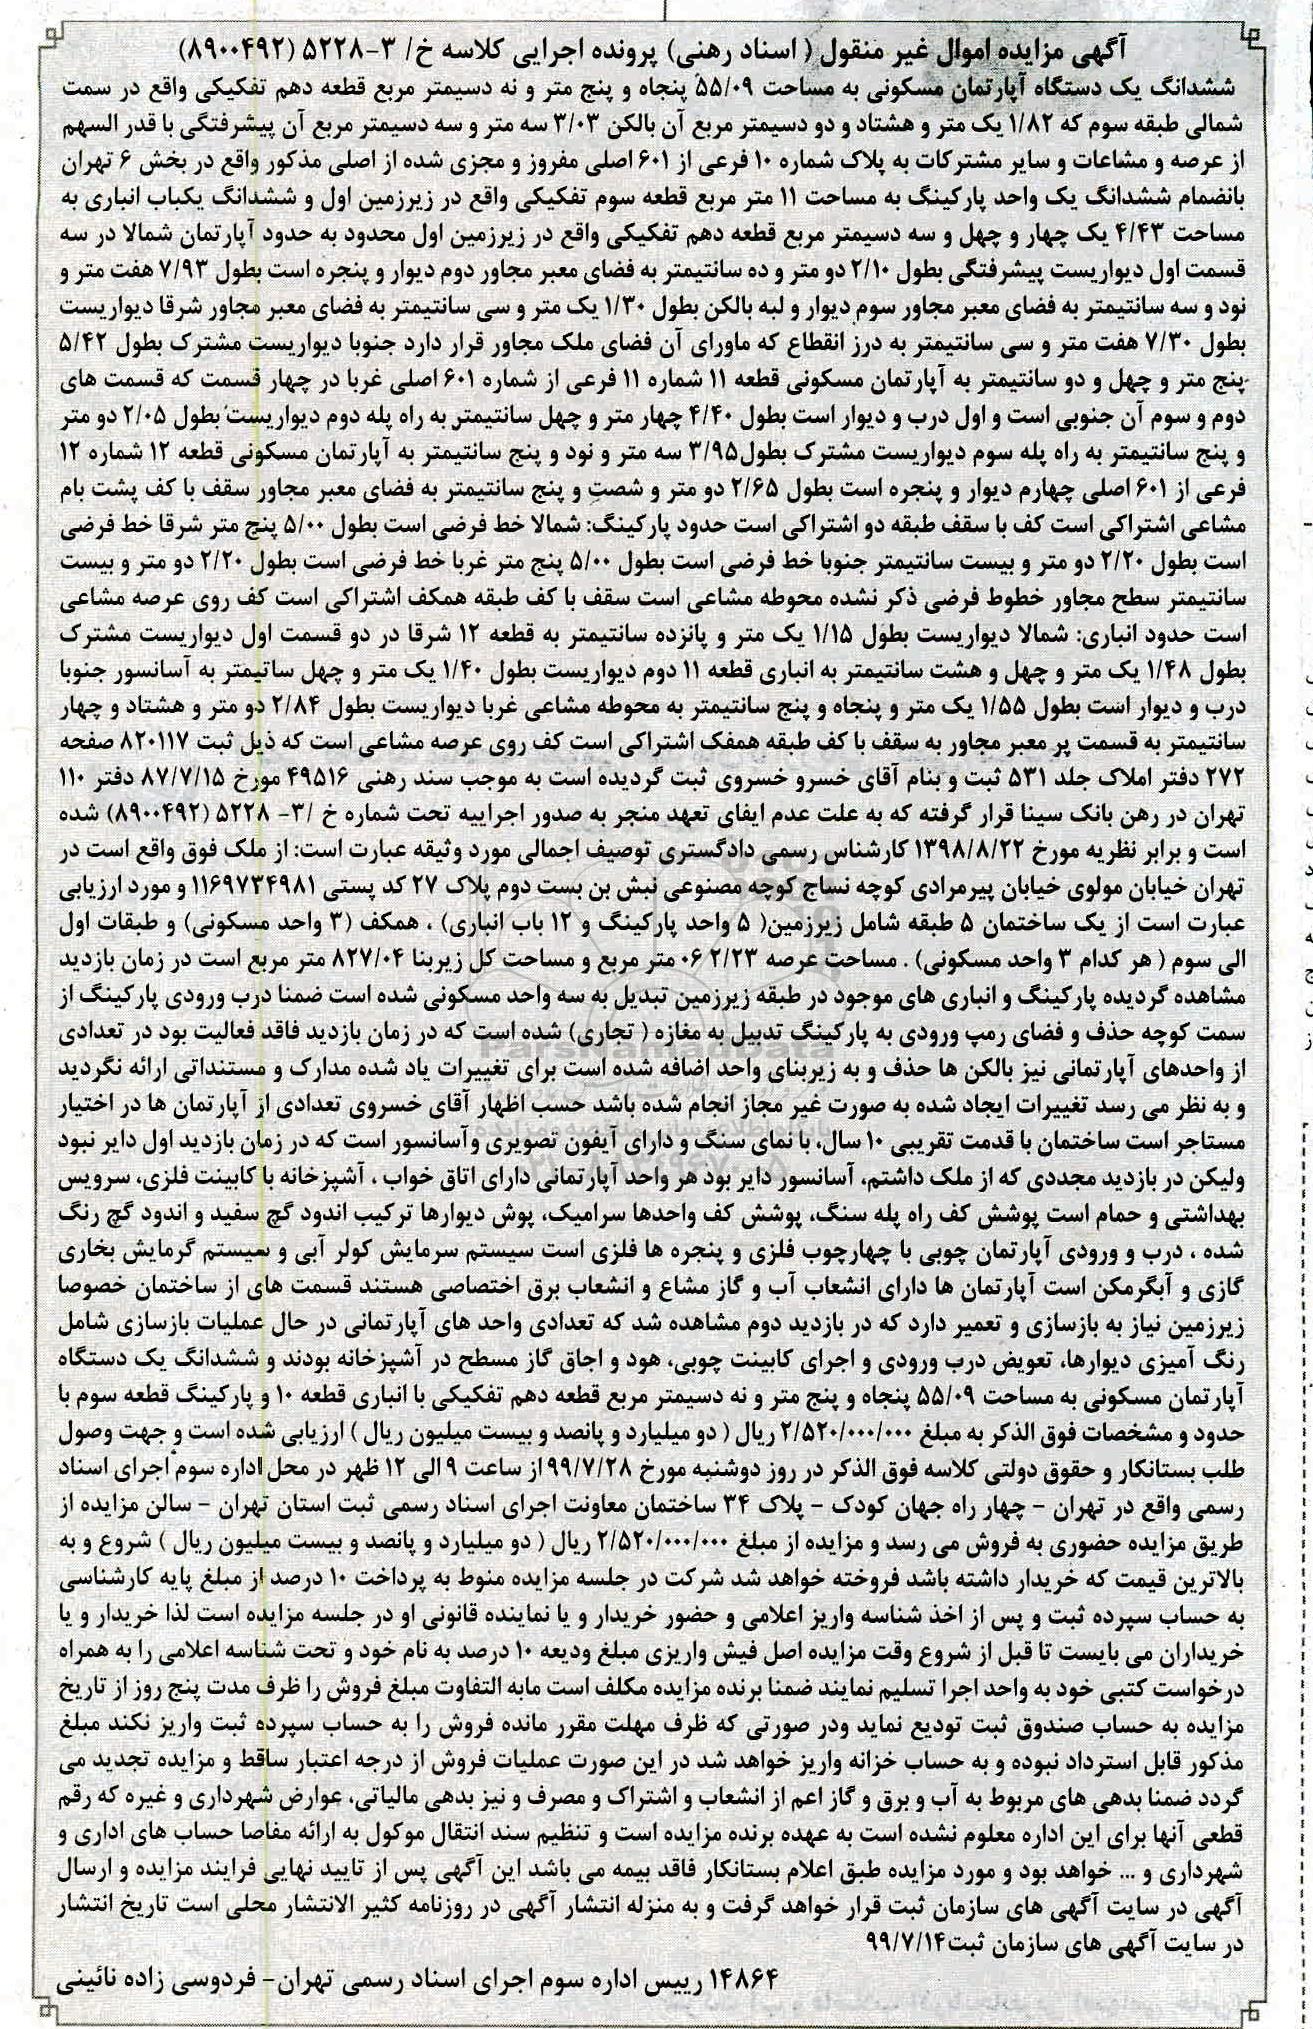 آگهی مزایده اموال غیر منقول ( اسناد رهنی) پرونده اجرایی کلاسه خ/ ۳-۵۲۲۸ (۸۹۰۰۴۹۲)
ششدانگ یک دستگاه آپارتمان مسکونی به مساحت ۵۵/۰۹ پنجاه و پنج متر و نه دسیمتر مربع قطعه دهم تفکیکی واقع در سمت
شمالی طبقه سوم که ۱/۸۲ یک متر و هشتاد و دو دسیمتر مربع آن بالکن ۳/۰۳ سه متر و سه دسیمتر مربع آن پیشرفتگی با قدر السهم
از عرصه و مشاعات و سایر مشترکات به پلاک شماره ۱۰ فرعی از ۶۰۱ اصلی مفروز و مجزی شده از اصلی مذکور واقع در بخش ۶ تهران
بانضمام ششدانگ یک واحد پارکینگ به مساحت ۱۱ متر مربع قطعه سوم تفکیکی واقع در زیرزمین اول و ششدانگ یکباب انباری به
مساحت ۴/۴۳ یک چهار و چهل و سه دسیمتر مربع قطعه دهم تفکیکی واقع در زیرزمین اول محدود به حدود آپارتمان شمالا در سه
قسمت اول دیواریست پیشرفتگی بطول ۲/۱۰ دو متر و ده سانتیمتر به فضای معبر مجاور دوم دیوار و پنجره است بطول ۷/۹۳ هفت متر و
نود و سه سانتیمتر به فضای معبر مجاور سوم دیوار و لبه بالکن بطول ۱/۳۰ یک متر و سی سانتیمتر به فضای معبر مجاور شرقا دیواریست
بطول ۷/۳۰ هفت متر و سی سانتیمتر به درز انقطاع که ماورای آن فضای ملک مجاور قرار دارد جنوبا دیواریست مشترک بطول ۵/۴۲
پنج متر و چهل و دو سانتیمتر به آپارتمان مسکونی قطعه ۱۱ شماره ۱۱ فرعی از شماره ۶۰۱ اصلی غربا در چهار قسمت که قسمت های
دوم و سوم آن جنوبی است و اول درب و دیوار است بطول ۴/۴۰ چهار متر و چهل سانتیمتر به راه پله دوم دیواریست بطول ۲/۰۵ دو متر
و پنج سانتیمتر به راه پله سوم دیواریست مشترک بطول۳/۹۵ سه متر و نود و پنج سانتیمتر به آپارتمان مسکونی قطعه ۱۲ شماره ۱۲
فرعی از ۶۰۱ اصلی چهارم دیوار و پنجره است بطول ۲/۶۵ دو متر و شصت و پنج سانتیمتر به فضای معبر مجاور سقف با کف پشت بام
مشاعی اشتراکی است کف با سقف طبقه دو اشتراکی است حدود پارکینگ: شمالا خط فرضی است بطول ۵/۰۰ پنج متر شرقا خط فرضی
است بطول ۲/۲۰ دو متر و بیست سانتیمتر جنوبا خط فرضی است بطول ۵/۰۰ پنج متر غربا خط فرضی است بطول ۲/۲۰ دو متر و بیست
سانتیمتر سطح مجاور خطوط فرضی ذکر نشده محوطه مشاعی است سقف با کف طبقه همکف اشتراکی است کف روی عرصه مشاعی
است حدود انباری: شمالا دیواریست بطول ۱/۱۵ یک متر و پانزده سانتیمتر به قطعه ۱۲ شرقا در دو قسمت اول دیواریست مشترک
بطول ۱/۴۸ یک متر و چهل و هشت سانتیمتر به انباری قطعه ۱۱ دوم دیواریست بطول ۱/۴۰ یک متر و چهل ساتیمتر به آسانسور جنوبا
درب و دیوار است بطول ۱/۵۵ یک متر و پنجاه و پنج سانتیمتر به محوطه مشاعی غربا دیواریست بطول ۲/۸۴ دو متر و هشتاد و چهار
سانتیمتر به قسمت پر معبر مجاور به سقف با کف طبقه همفک اشتراکی است کف روی عرصه مشاعی است که ذیل ثبت ۸۲۰۱۱۷ صفحه
۲۷۲ دفتر املاک جلد ۵۳۱ ثبت و بنام آقای خسرو خسروی ثبت گردیده است به موجب سند رهنی ۴۹۵۱۶ مورخ ۸۷/۷/۱۵ دفتر ۱۱۰
تهران در رهن بانک سینا قرار گرفته که به علت عدم ایفای تعهد منجر به صدور اجراییه تحت شماره خ /۳- ۵۲۲۸ (۸۹۰۰۴۹۲) شده
است و برابر نظریه مورخ ۱۳۹۸/۸/۲۲ کارشناس رسمی دادگستری توصیف اجمالی مورد وثیقه عبارت است: از ملک فوق واقع است در
تهران خیابان مولوی خیابان پیرمرادی کوچه نساج کوچه مصنوعی نبش بن بست دوم پلاک ۲۷ کد پستی ۱۱۶۹۷۳۴۹۸۱ و مورد ارزیابی
عبارت است از یک ساختمان ۵ طبقه شامل زیرزمین( ۵ واحد پارکینگ و ۱۲ باب انباری) ، همکف (۳ واحد مسکونی) و طبقات اول
الی سوم ( هر کدام ۳ واحد مسکونی) . مساحت عرصه ۲/۲۳ ۰۶ متر مربع و مساحت کل زیربنا ۸۲۷/۰۴ متر مربع است در زمان بازدید
مشاهده گردیده پارکینگ و انباری های موجود در طبقه زیرزمین تبدیل به سه واحد مسکونی شده است ضمنا درب ورودی پارکینگ از
سمت کوچه حذف و فضای رمپ ورودی به پارکینگ تدبیل به مغازه ( تجاری) شده است که در زمان بازدید فاقد فعالیت بود در تعدادی
از واحدهای آپارتمانی نیز بالکن ها حذف و به زیربنای واحد اضافه شده است برای تغییرات یاد شده مدارک و مستنداتی ارائه نگردید
و به نظر می رسد تغییرات ایجاد شده به صورت غیر مجاز انجام شده باشد حسب اظهار آقای خسروی تعدادی از آپارتمان ها در اختیار
مستاجر است ساختمان با قدمت تقریبی ۱۰ سال، با نمای سنگ و دارای آیفون تصویری وآسانسور است که در زمان بازدید اول دایر نبود
ولیکن در بازدید مجددی که از ملک داشتم، آسانسور دایر بود هر واحد آپارتمانی دارای اتاق خواب ، آشپزخانه با کابینت فلزی، سرویس
بهداشتی و حمام است پوشش کف راه پله سنگ، پوشش کف واحدها سرامیک، پوش دیوارها ترکیب اندود گچ سفید و اندود گچ رنگ
شده ، درب و ورودی آپارتمان چوبی با چهارچوب فلزی و پنجره ها فلزی است سیستم سرمایش کولر آبی و سیستم گرمایش بخاری
گازی و آبگرمکن است آپارتمان ها دارای انشعاب آب و گاز مشاع و انشعاب برق اختصاصی هستند قسمت های از ساختمان خصوصا
زیرزمین نیاز به بازسازی و تعمیر دارد که در بازدید دوم مشاهده شد که تعدادی واحد های آپارتمانی در حال عملیات بازسازی شامل
رنگ آمیزی دیوارها، تعویض درب ورودی و اجرای کابینت چوبی، هود و اجاق گاز مسطح در آشپزخانه بودند و ششدانگ یک دستگاه
آپارتمان مسکونی به مساحت ۵۵/۰۹ پنجاه و پنج متر و نه دسیمتر مربع قطعه دهم تفکیکی با انباری قطعه ۱۰ و پارکینگ قطعه سوم با
حدود و مشخصات فوق الذکر به مبلغ ۲/۵۲۰/۰۰۰/۰۰۰ ریال ( دو میلیارد و پانصد و بیست میلیون ریال ) ارزیابی شده است و جهت وصول
طلب بستانکار و حقوق دولتی کلاسه فوق الذکر در روز دوشنبه مورخ ۹۹/۷/۲۸ از ساعت ۹ الی ۱۲ ظهر در محل اداره سوم اجرای اسناد
رسمی واقع در تهران - چهار راه جهان کودک - پلاک ۳۴ ساختمان معاونت اجرای اسناد رسمی ثبت استان تهران - سالن مزایده از
طریق مزایده حضوری به فروش می رسد و مزایده از مبلغ ۲/۵۲۰/۰۰۰/۰۰۰ ریال ( دو میلیارد و پانصد و بیست میلیون ریال ) شروع و به
بالاترین قیمت که خریدار داشته باشد فروخته خواهد شد شرکت در جلسه مزایده منوط به پرداخت ۱۰ درصد از مبلغ پایه کارشناسی
به حساب سپرده ثبت و پس از اخذ شناسه واریز اعلامی و حضور خریدار و یا نماینده قانونی او در جلسه مزایده است لذا خریدار و یا
خریداران می بایست تا قبل از شروع وقت مزایده اصل فیش واریزی مبلغ ودیعه ۱۰ درصد به نام خود و تحت شناسه اعلامی را به همراه
درخواست کتبی خود به واحد اجرا تسلیم نمایند ضمنا برنده مزایده مکلف است مابه التفاوت مبلغ فروش را ظرف مدت پنج روز از تاریخ
مزایده به حساب صندوق ثبت تودیع نماید ودر صورتی که ظرف مهلت مقرر مانده فروش را به حساب سپرده ثبت واریز نکند مبلغ
مذکور قابل استرداد نبوده و به حساب خزانه واریز خواهد شد در این صورت عملیات فروش از درجه اعتبار ساقط و مزایده تجدید می
گردد ضمنا بدهی های مربوط به آب و برق و گاز اعم از انشعاب و اشتراک و مصرف و نیز بدهی مالیاتی، عوارض شهرداری و غیره که رقم
قطعی آنها برای این اداره معلوم نشده است به عهده برنده مزایده است و تنظیم سند انتقال موکول به ارائه مفاصا حساب های اداری و
شهرداری و ... خواهد بود و مورد مزایده طبق اعلام بستانکار فاقد بیمه می باشد این آگهی پس از تایید نهایی فرایند مزایده و ارسال
آگهی در سایت آگهی های سازمان ثبت قرار خواهد گرفت و به منزله انتشار آگهی در روزنامه کثیر الانتشار محلی است تاریخ انتشار
در سایت آگهی های سازمان ثبت۹۹/۷/۱۴
۱۴۸۶۴ رییس اداره سوم اجرای اسناد رسمی تهران- فردوسی زاده نائینی